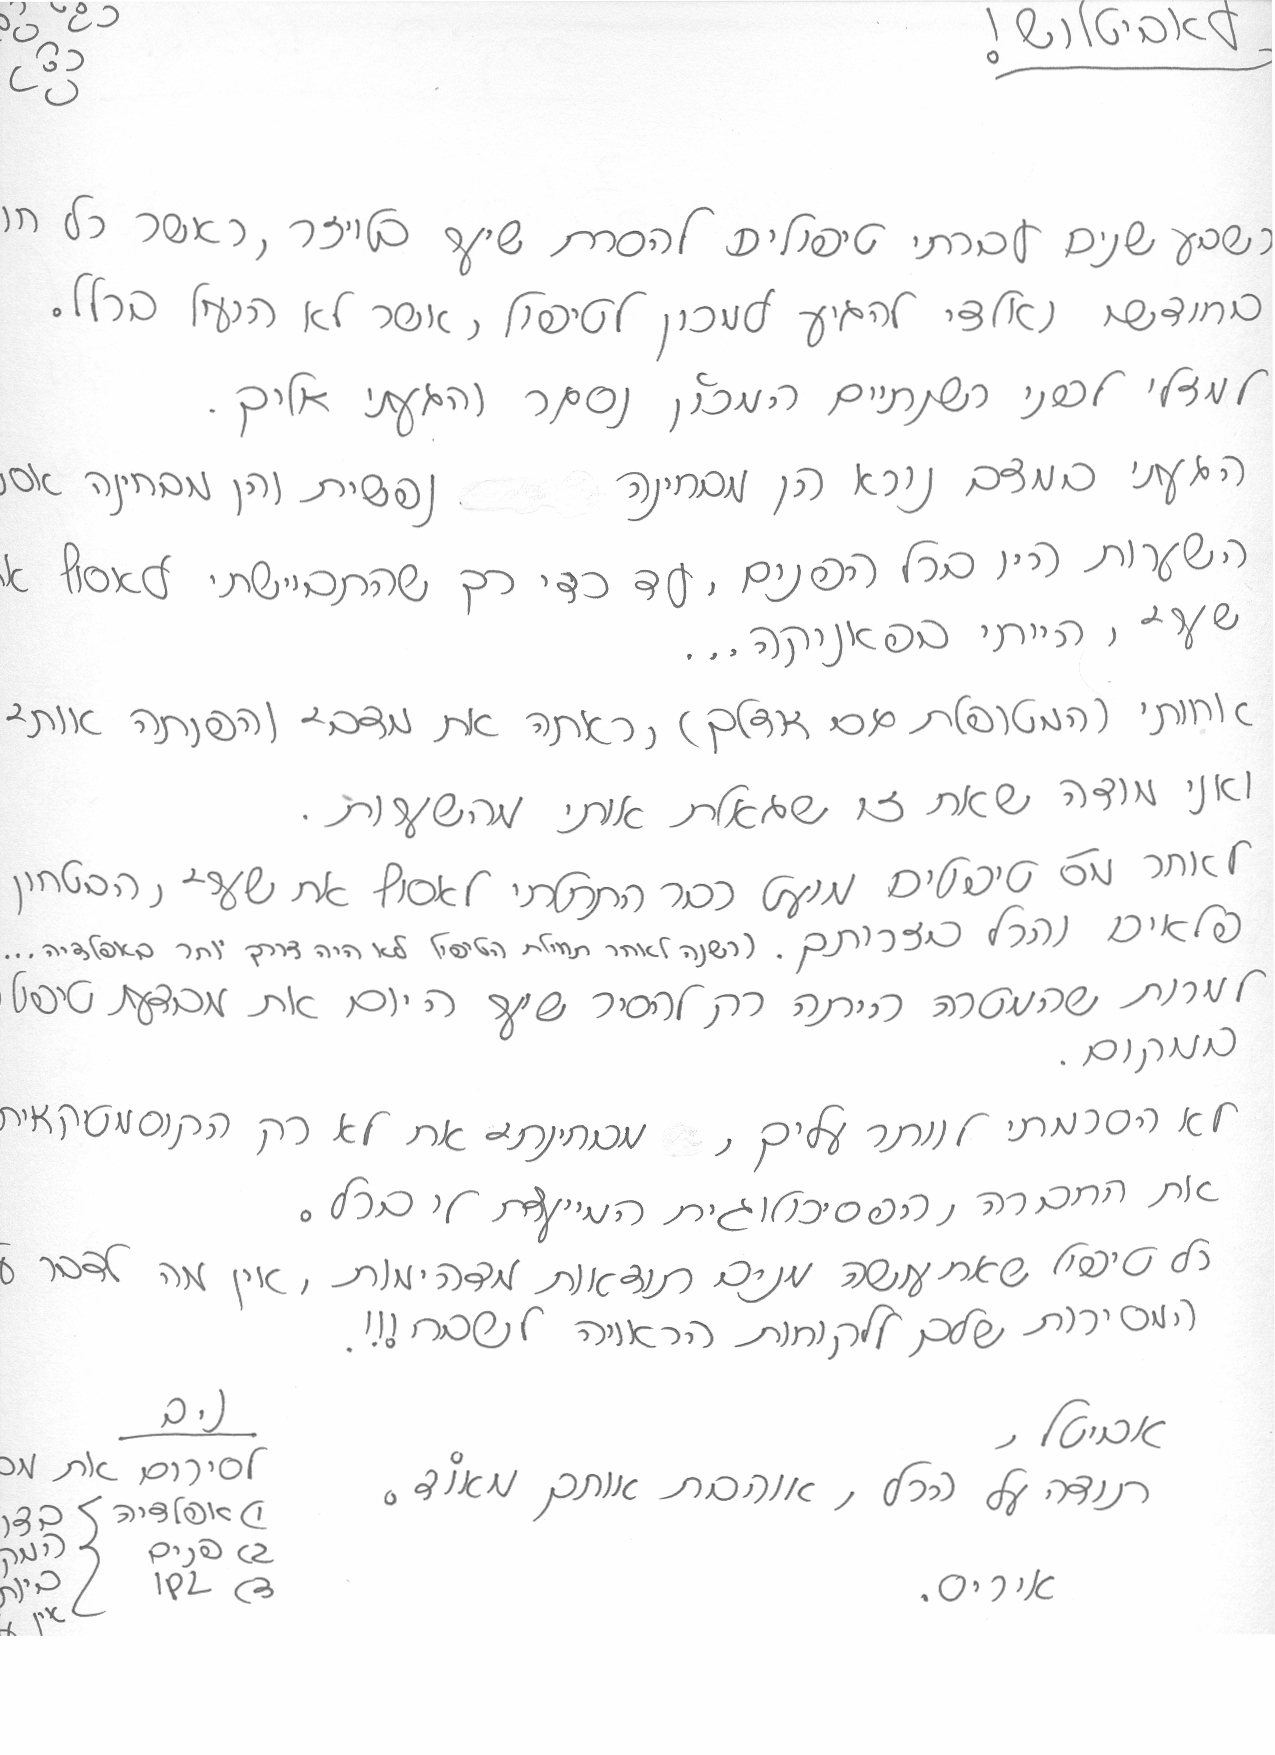 לאביטלוש!
כשבע שנים עברתי טיפולים להסרת שיער בלייזר, כאשר כל
נאלצתי להגיע למכון לטיפול, אשר לא הועיל בכלל.
למזלי לפני כשנתיים המכון נסגר והגעתי אליך.
הגעתי במצב נורא הן מבחינה נפשית והן מבחינה
השערות היו בכל הפנים, עד כדי כך שהתביישתי לאסוף
שערי, הייתי בפאניקה...
אחותי (המטופלת גם אצלך), ראתה את מצבי והפנתה אותי
ואני מודה שאת זו שגאלת אותי מהשערות.
לאחר מס' טיפולים מועט כבר התחלתי לאסוף את שערי, הבטחון
פלאים והכל בזכותך. (כשנה לאחר תחילת הטיפול לא היה צורך יותר באפילציה...
למרות שהמטרה הייתה רק להסיר שיער היום את מבצעת טיפול
במקום.
לא הסכמתי לוותר עלייך, מבחינתי את לא רק הקוסמטיקאית
את החברה, הפסיכולוגית המייעצת לי בכל.
כל טיפול שאת עושה מניב תוצאות מדהימות, אין מה לדבר
המסירות שלך ללקוחות הראויה לשבח!!!.
אביטל,
תודה על הכל, אוהבת אותך מאוד.
איריס.
נ.ב
לסיכום את
1) אפילציה
2) פנים
3) IPL
אין